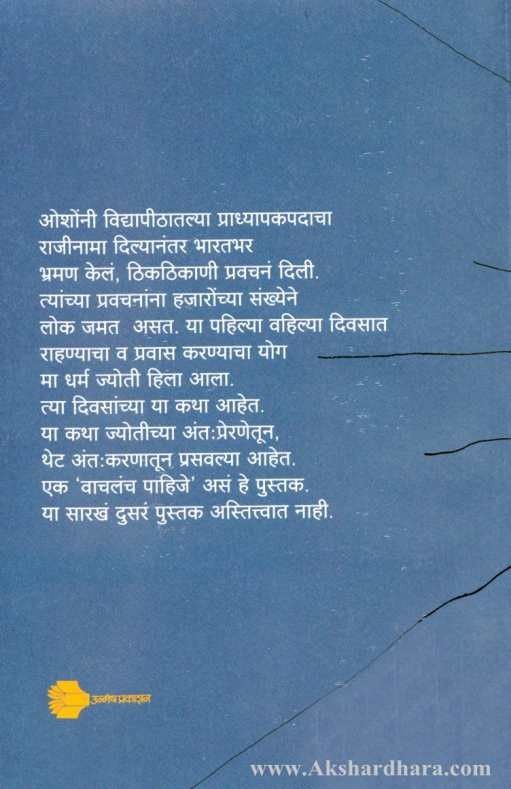 ओशोंनी विद्यापीठातल्या प्राध्यापकपदाचा
राजीनामा दिल्यानंतर भारतभर
भ्रमण केलं, ठिकठिकाणी प्रवचनं दिली.
त्यांच्या प्रवचनांना हजारोंच्या संख्येने
लोक जमत असत. या पहिल्या वहिल्या दिवसात
राहण्याचा व प्रवास करण्याचा योग
मा धर्म ज्योती हिला आला.
त्या दिवसांच्या या कथा आहेत.
या कथा ज्योतीच्या अंत:प्रेरणेतून,
थेट अंत:करणातून प्रसवल्या आहेत.
एक ‘वाचलंच पाहिजे’ असं हे पुस्तक.
या सारखं दुसरं पुस्तक अस्तित्त्वात नाही.
उन्मेष प्रकाशन
www.Akshardhara.com